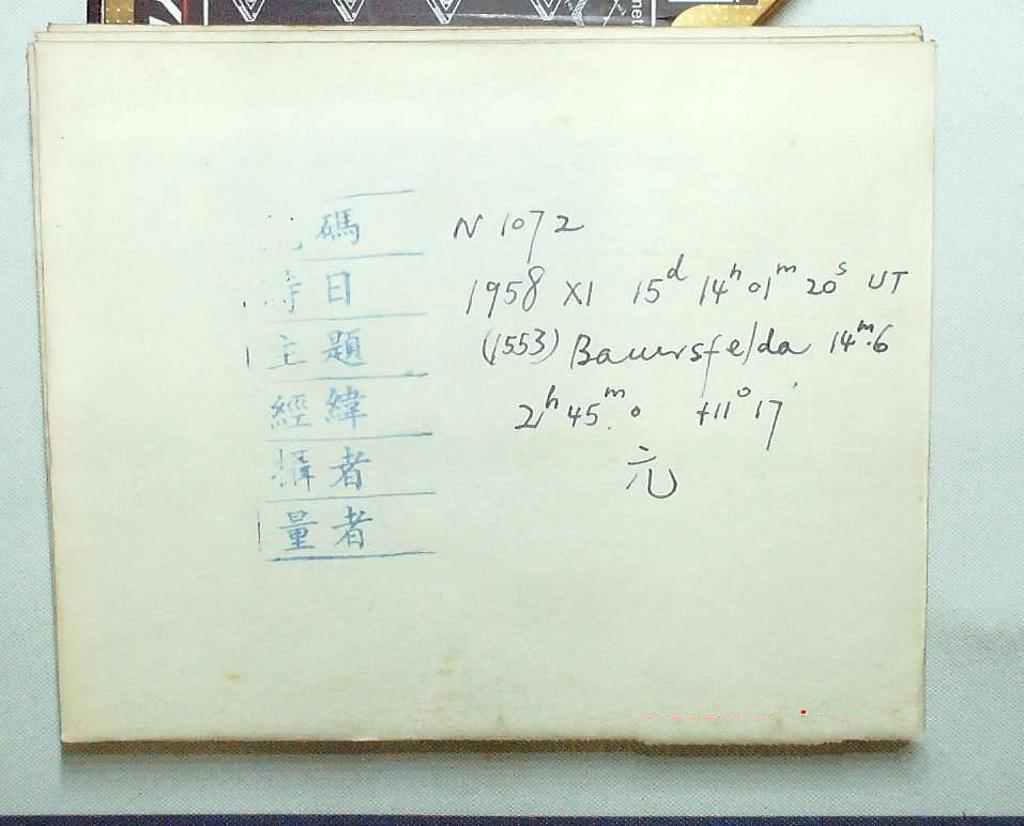 碼 N 1072
時日 1958 XI 15d 14h 01m 20s UT
主題 (1553) Bauersfelda 14m.6
經緯 2h 45m.0 +11° 17'
攝者 元
量者
net